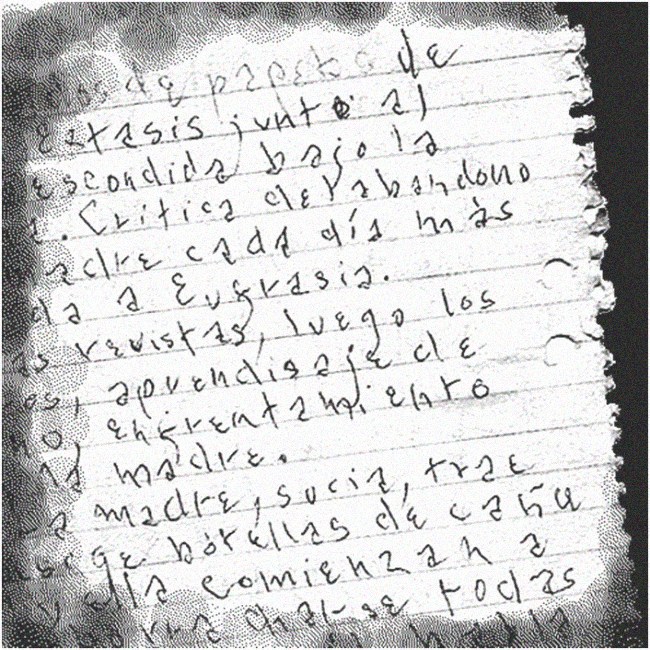 de papeles de
extasis junto al
escondida bajo la
. Critica del abandono
adre cada día más
da a Eugrasia.
as revistas, luego los
es, aprendisaje de
no, enfrentamiento
la madre.
La madre, sucia, trae
botellas de caña
y ella comienzan a
emborracharse todas